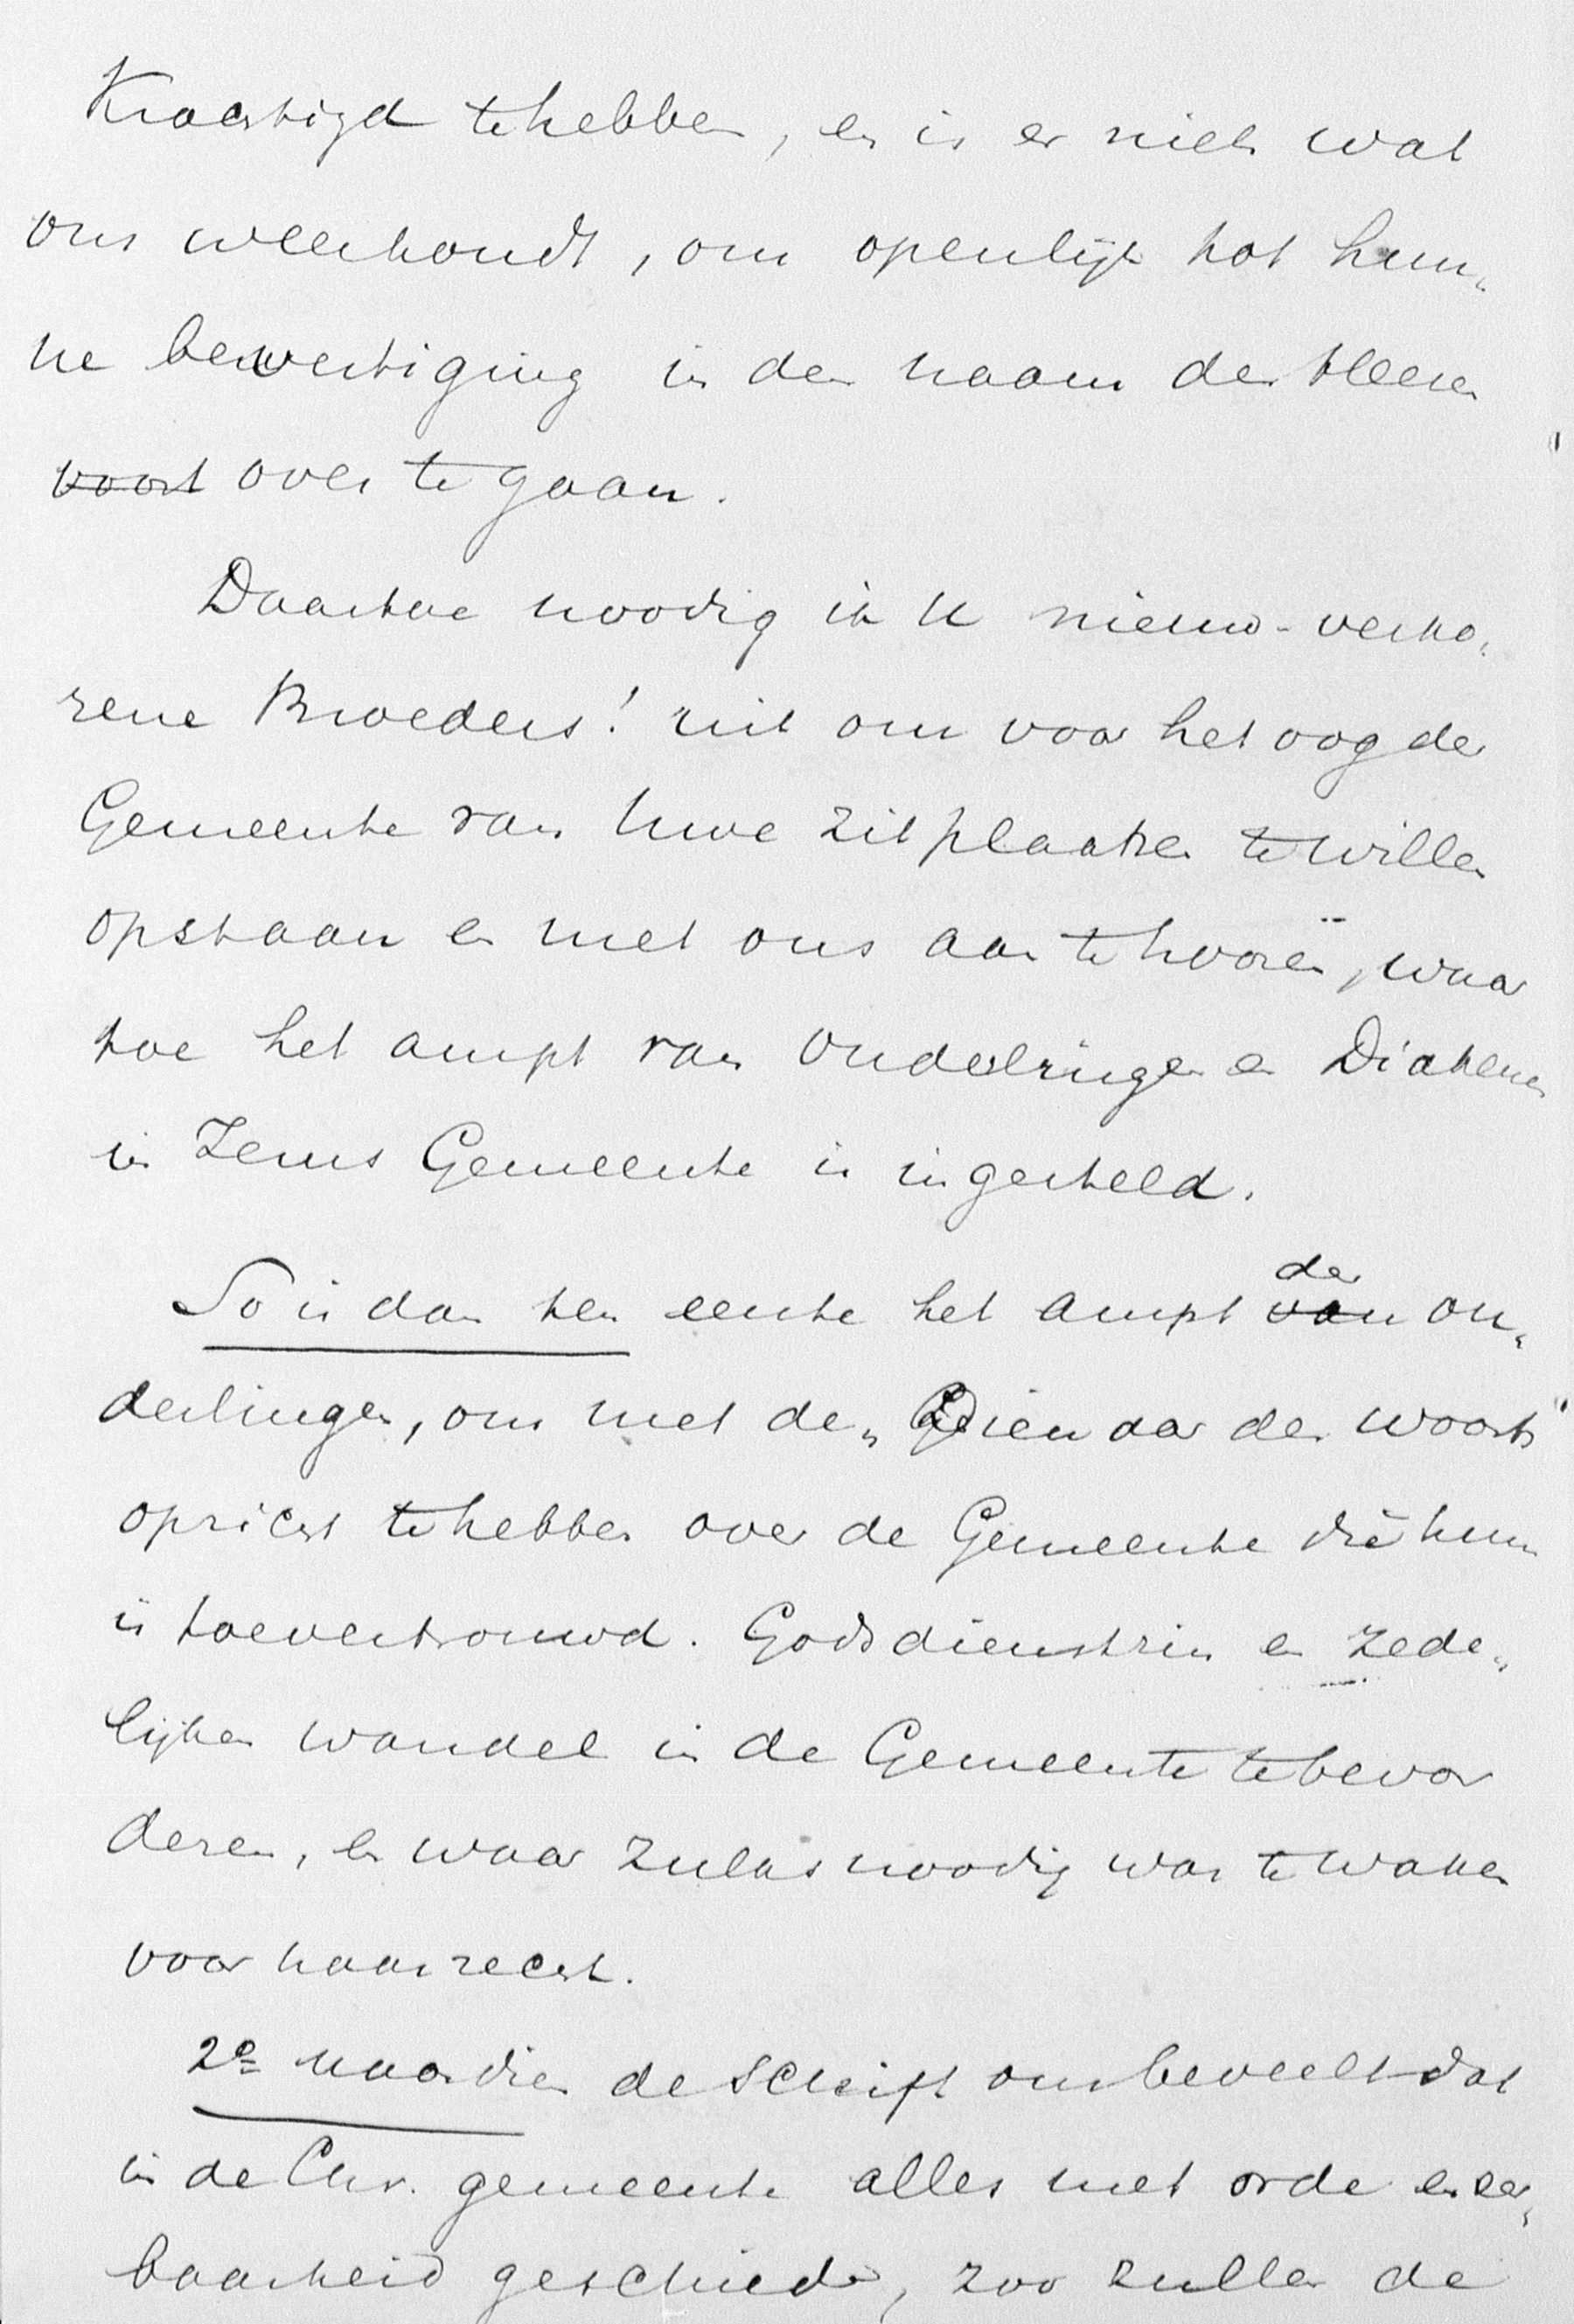 Krachtigd te hebben, en is er niets wat
ons weerhoudt, om openlijk tot hun„
ne bevestiging in den naam des Heeren
voort over te gaan.
Daartoe noodig ik U nieuw-verko„
rene Broeders! uit om voor het oog der
Gemeente van Uwe zitplaatsen te willen
opstaan en met ons aan te hooren, waar
toe het ampt van Ouderlingen en Diakenen
in Jezus Gemeente is ingesteld.
So is dan ten eerste het ampt van der ou„
derlingen, om met den „Dienaar des woords"
opzicht te hebben over de Gemeente die hun
is toevertrouwd. Godsdienstzin en zede„
lijken wandel in de Gemeente te bevor
deren, en waar zulks noodig was te waken
voor haar recht.
2e naardien de Schrift ons beveelt dat
in de Chr. gemeente alles met orde en eer„
baarheid geschiede, zoo zullen de